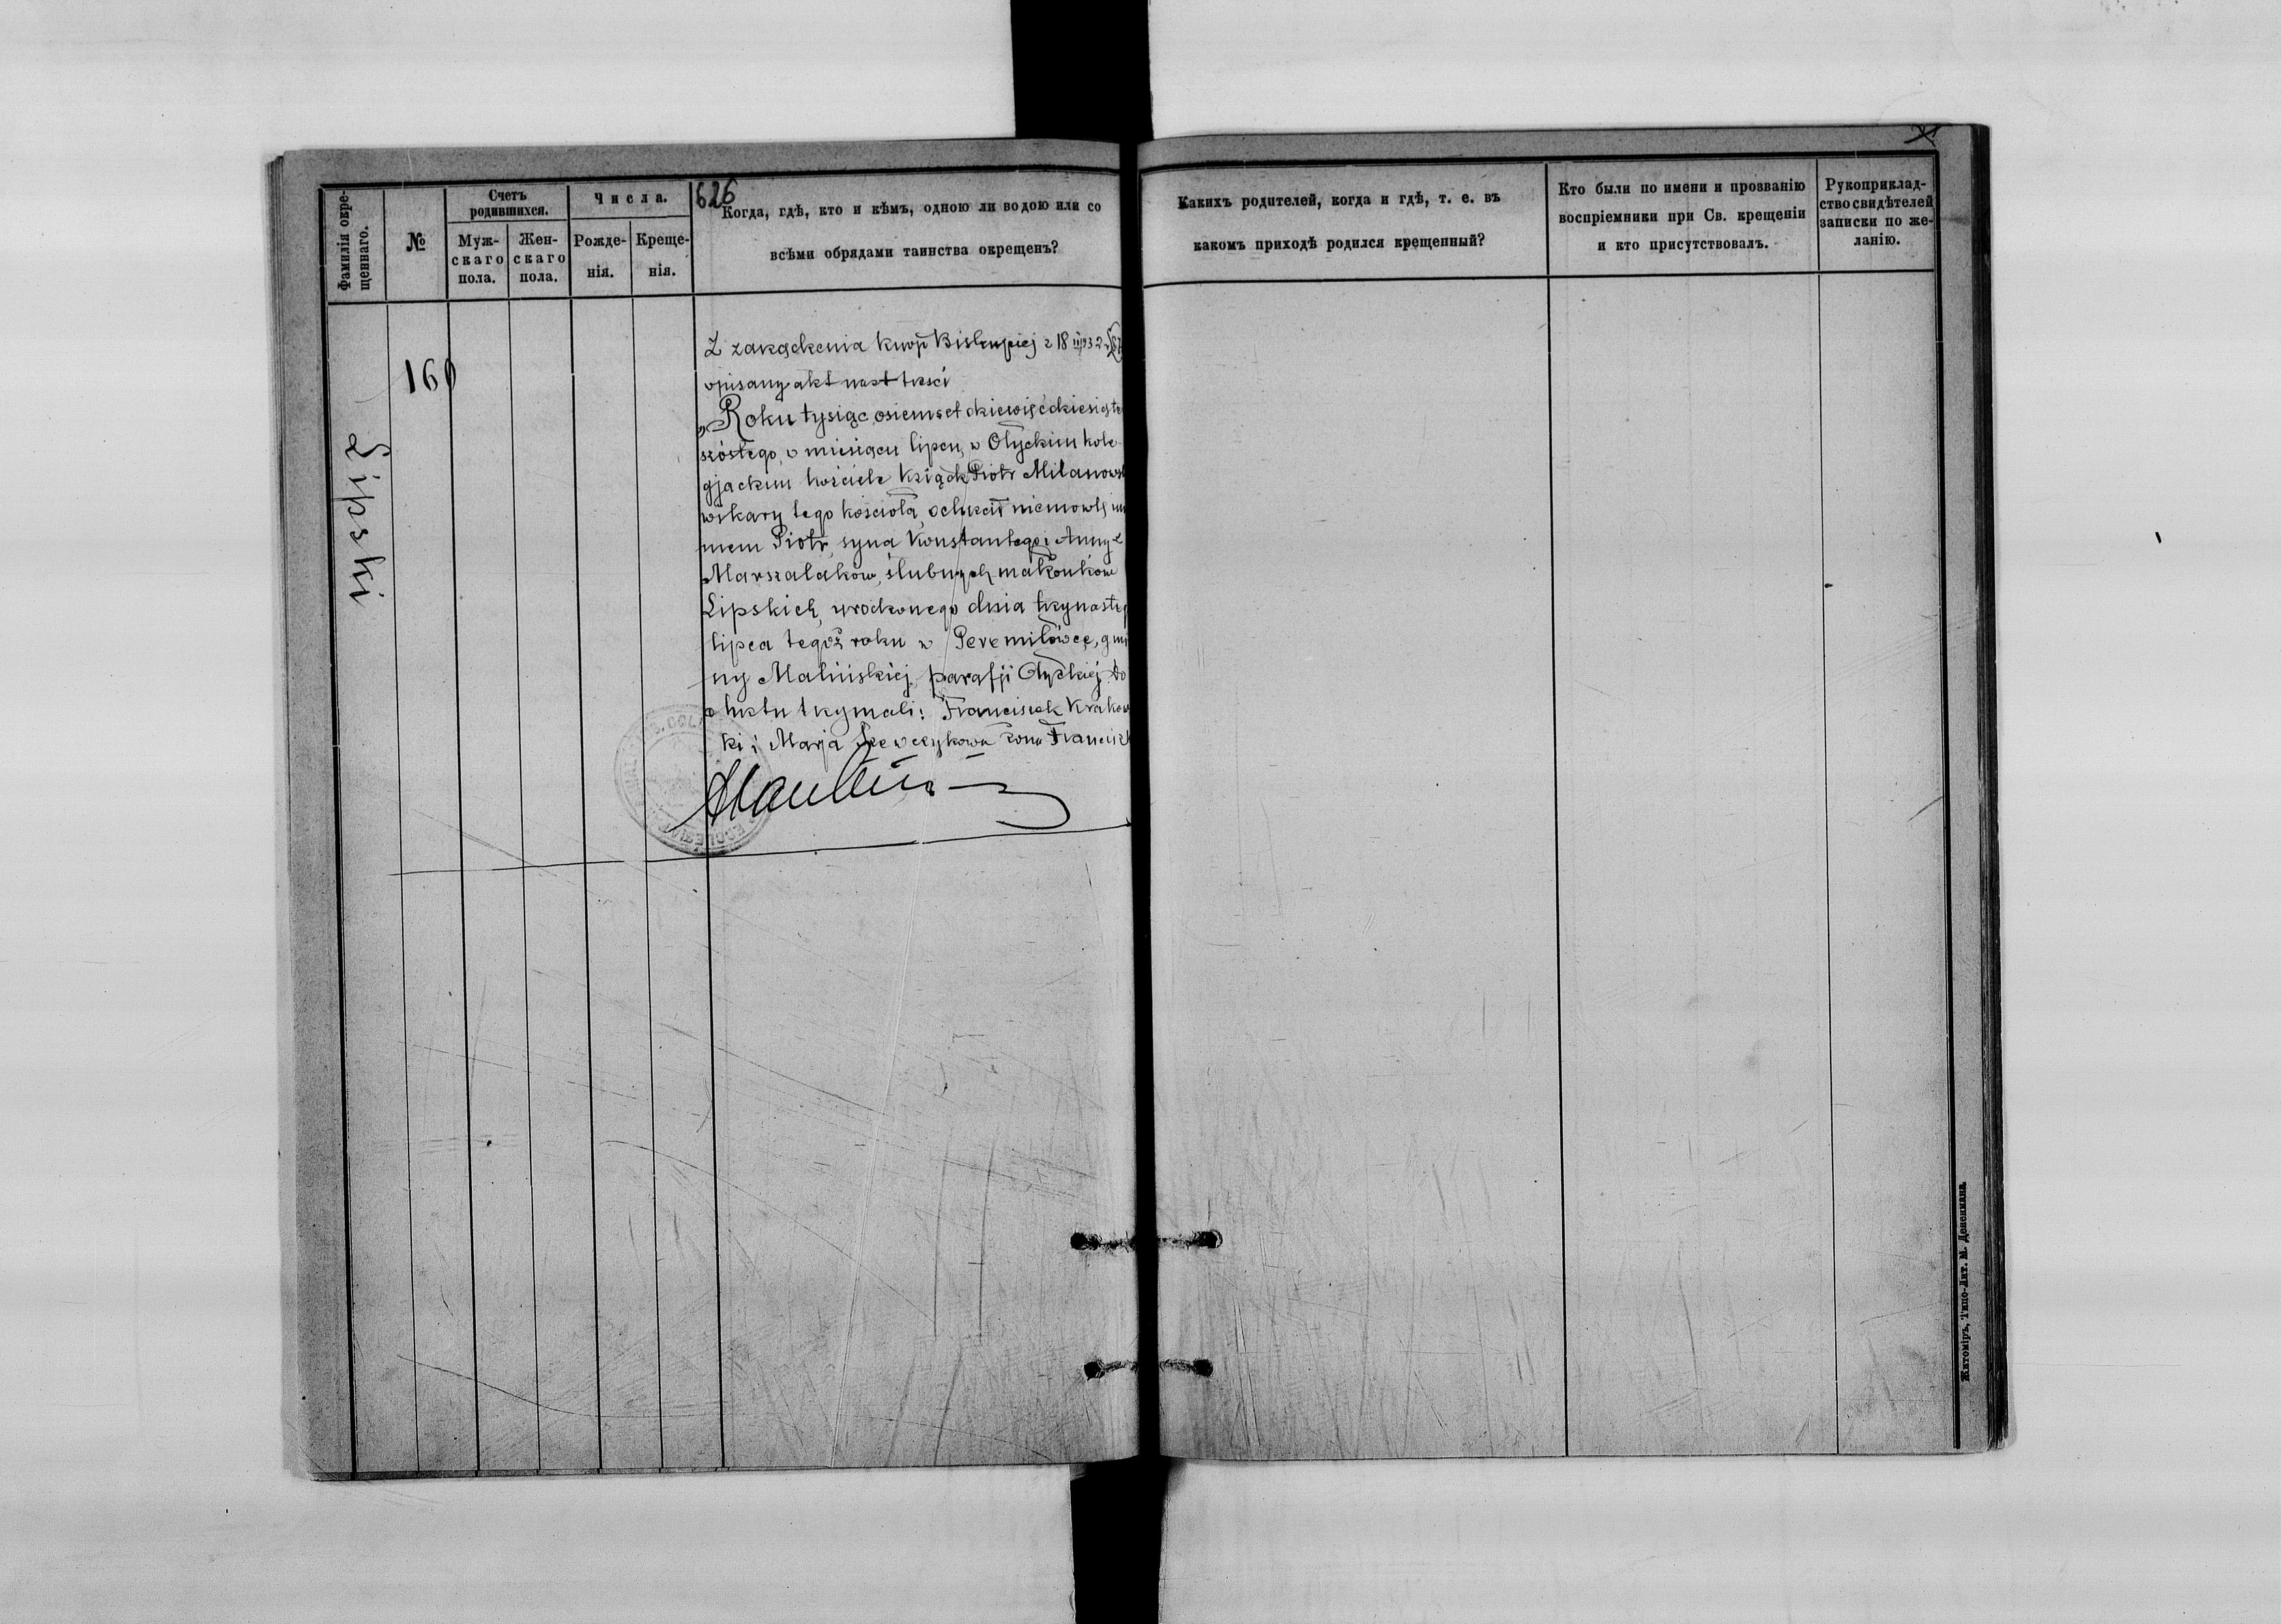 626
Фамилія окре-
щеннаго.
№
Счетъ
родившихся.
Муж-
скаго
пола.
Жен-
скаго
пола.
Числа.
Рожде-
нія.
Креще-
нія.
Когда, гдѣ, кто и кѣмъ, одною ли водою или со
всѣми обрядами таинства окрещенъ?
Каких родителей, когда и гдѣ, т. е. въ
какомъ приходѣ родился крещенный?
Кто были по имени и прозванію
воспріемники при Св. крещеніи
и кто присутствовалъ.
Рукоприклад-
ство свидѣтелей
записки по же-
ланію.
160
Lipski
Z zarządzenia Kurji Biskupiej z 18
opisany akt nast treści
„Roku tysiąc osiemset dziewięćdziesiąte
szóstego, w miesiącu lipcu, w Ołyckim kole-
gjackim kościele Ksiądz Piotr Milanows
wikary tego kościoła, ochrzcił niemowlę imi
niem Piotr, syna Konstantego i Anny z
Marszałaków, ślubnych małżonków
Lipskich, urodzonego dnia trzynasteg
lipca tegoż roku w Peremiłówce, gmi
ny Malińskiej, parafji Ołyckiej. Do
chrztu trzymali: Franciszek Krakow
ki i Marja Szewczykowa żona Francisz
Житоміръ, Типо-Лит. М. Дененмана.